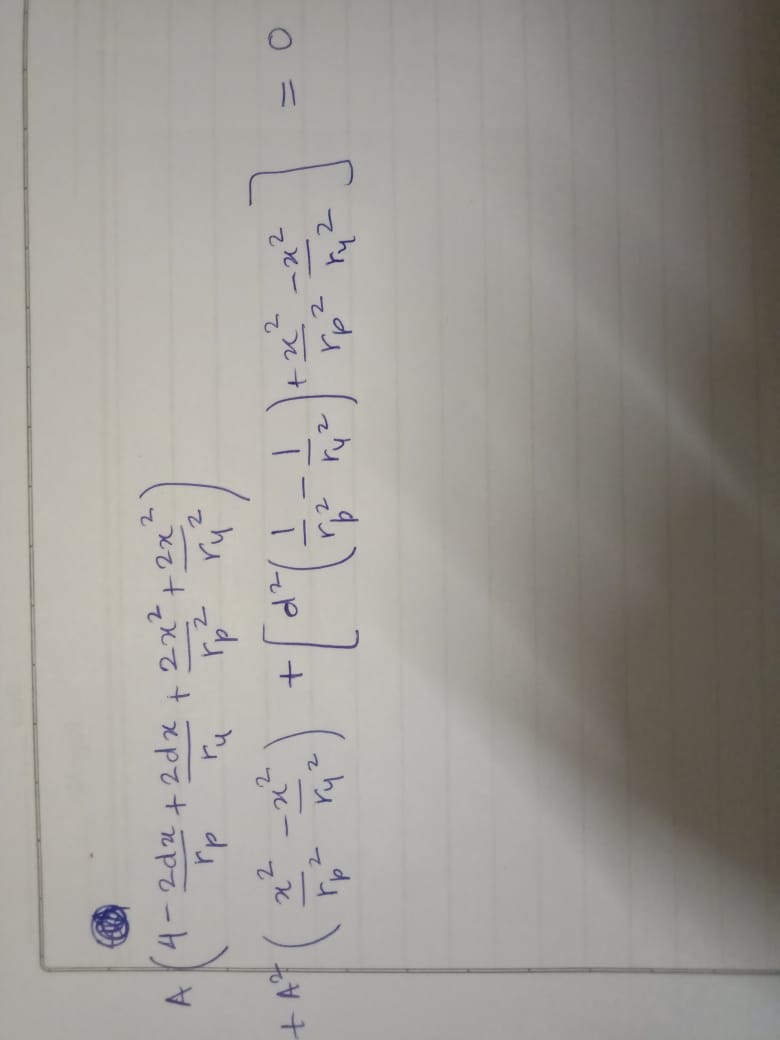 A (4 - 2dx/rp + 2dx/r4 + 2x²/rp² + 2x²/r4²)
+ A² (x²/rp² - x²/r4²) + [d² (1/rp² - 1/r4²) + x²/rp² - x²/r4²] = 0